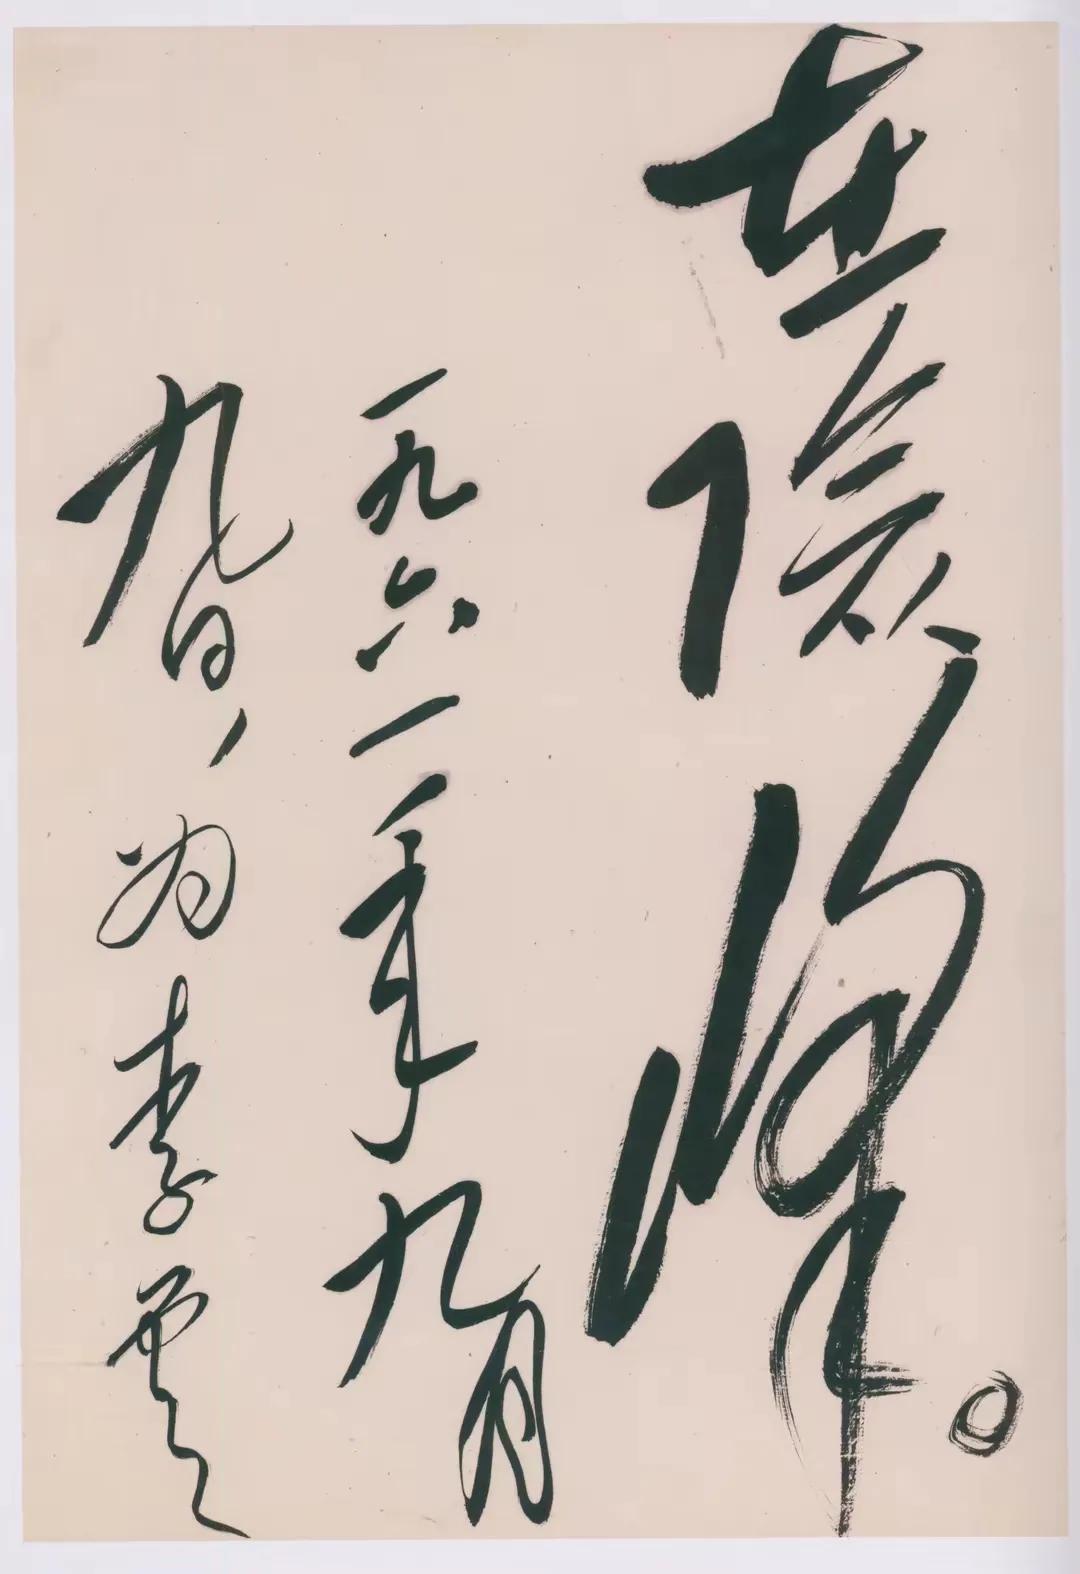 在險峰。
一九六一年九月
九日、为李進